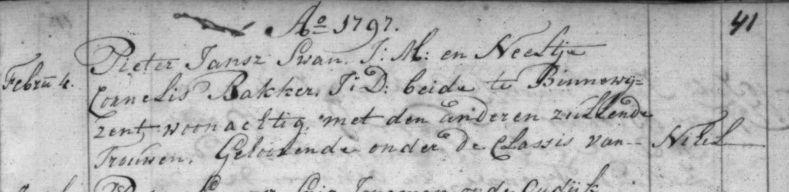 Ao 1797. 41
Febru 4. Pieter Jansz Swan. J: M: en Neeltje
Cornelis Bakker. J: D: beide te Binnewy=
zent, woonachtig. met den anderen zullende
Trouwen. Geloovende onder de Classis van — Nihil